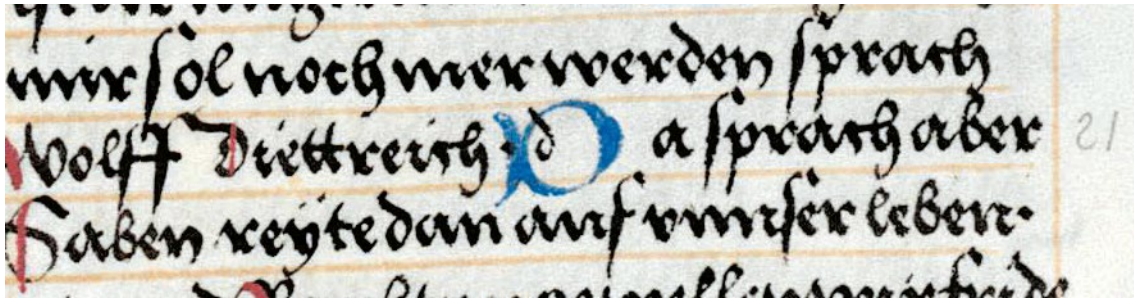 mir sol noch mer werden sprach
wolff diettreich · d Da sprach aber 21
Saben reÿte dan auf vnnser leben·